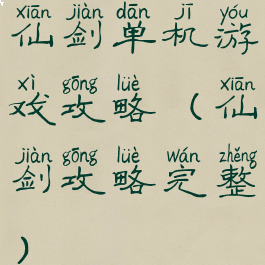 xiān jiàn dān jī yóu
仙剑单机游
xì gōng lüè xiān
戏攻略(仙
jiàn gōng lüè wán zhěng
剑攻略完整
)